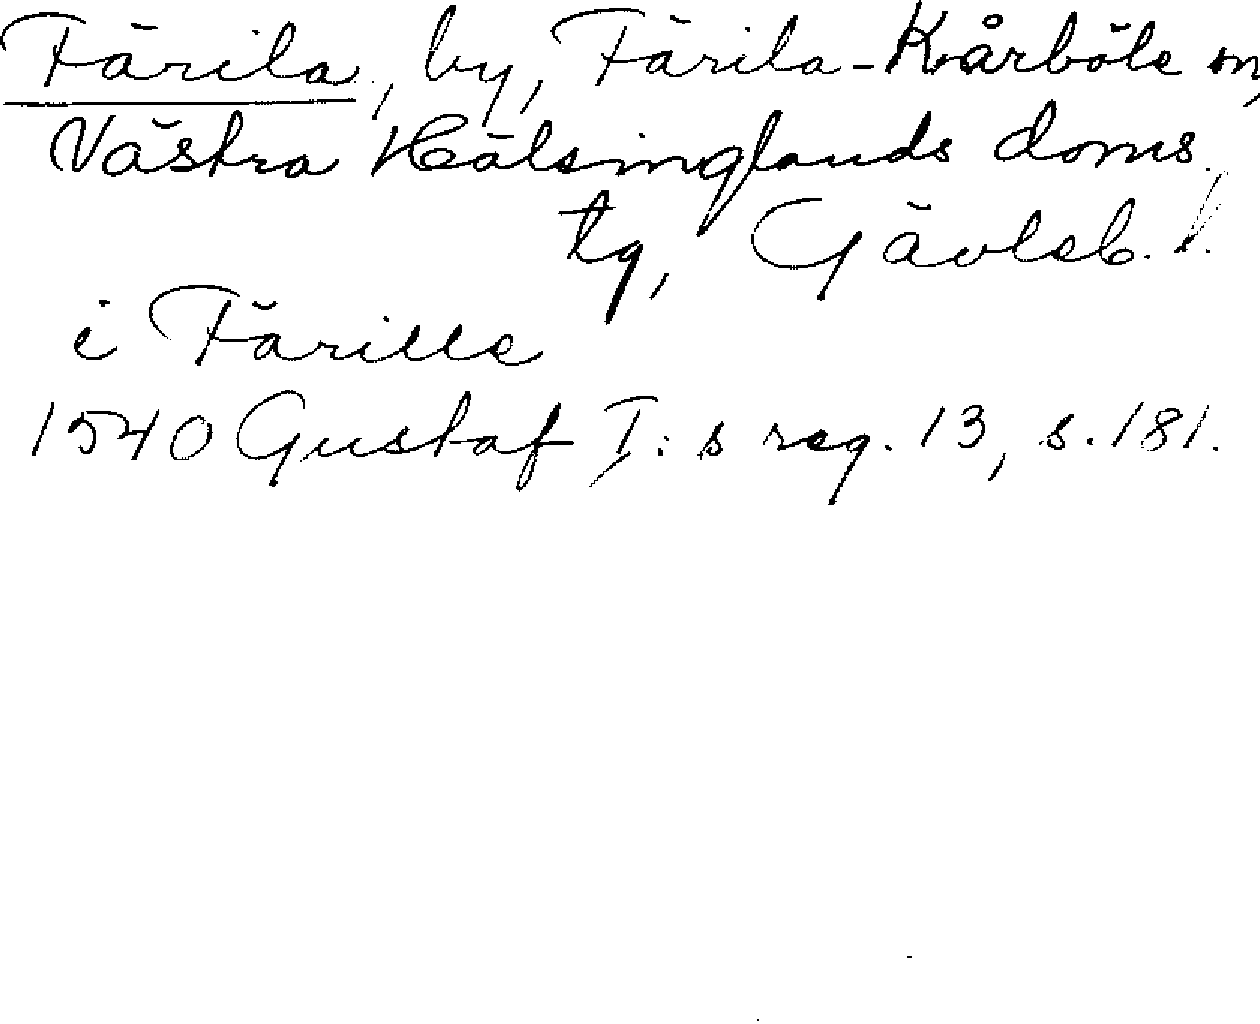 Färila, by, Färila-Kårböle sn,
Västra Hälsinglands doms.
tg, Gävleb. l.
i Färille
1540 Gustaf I:s reg. 13, s. 181.